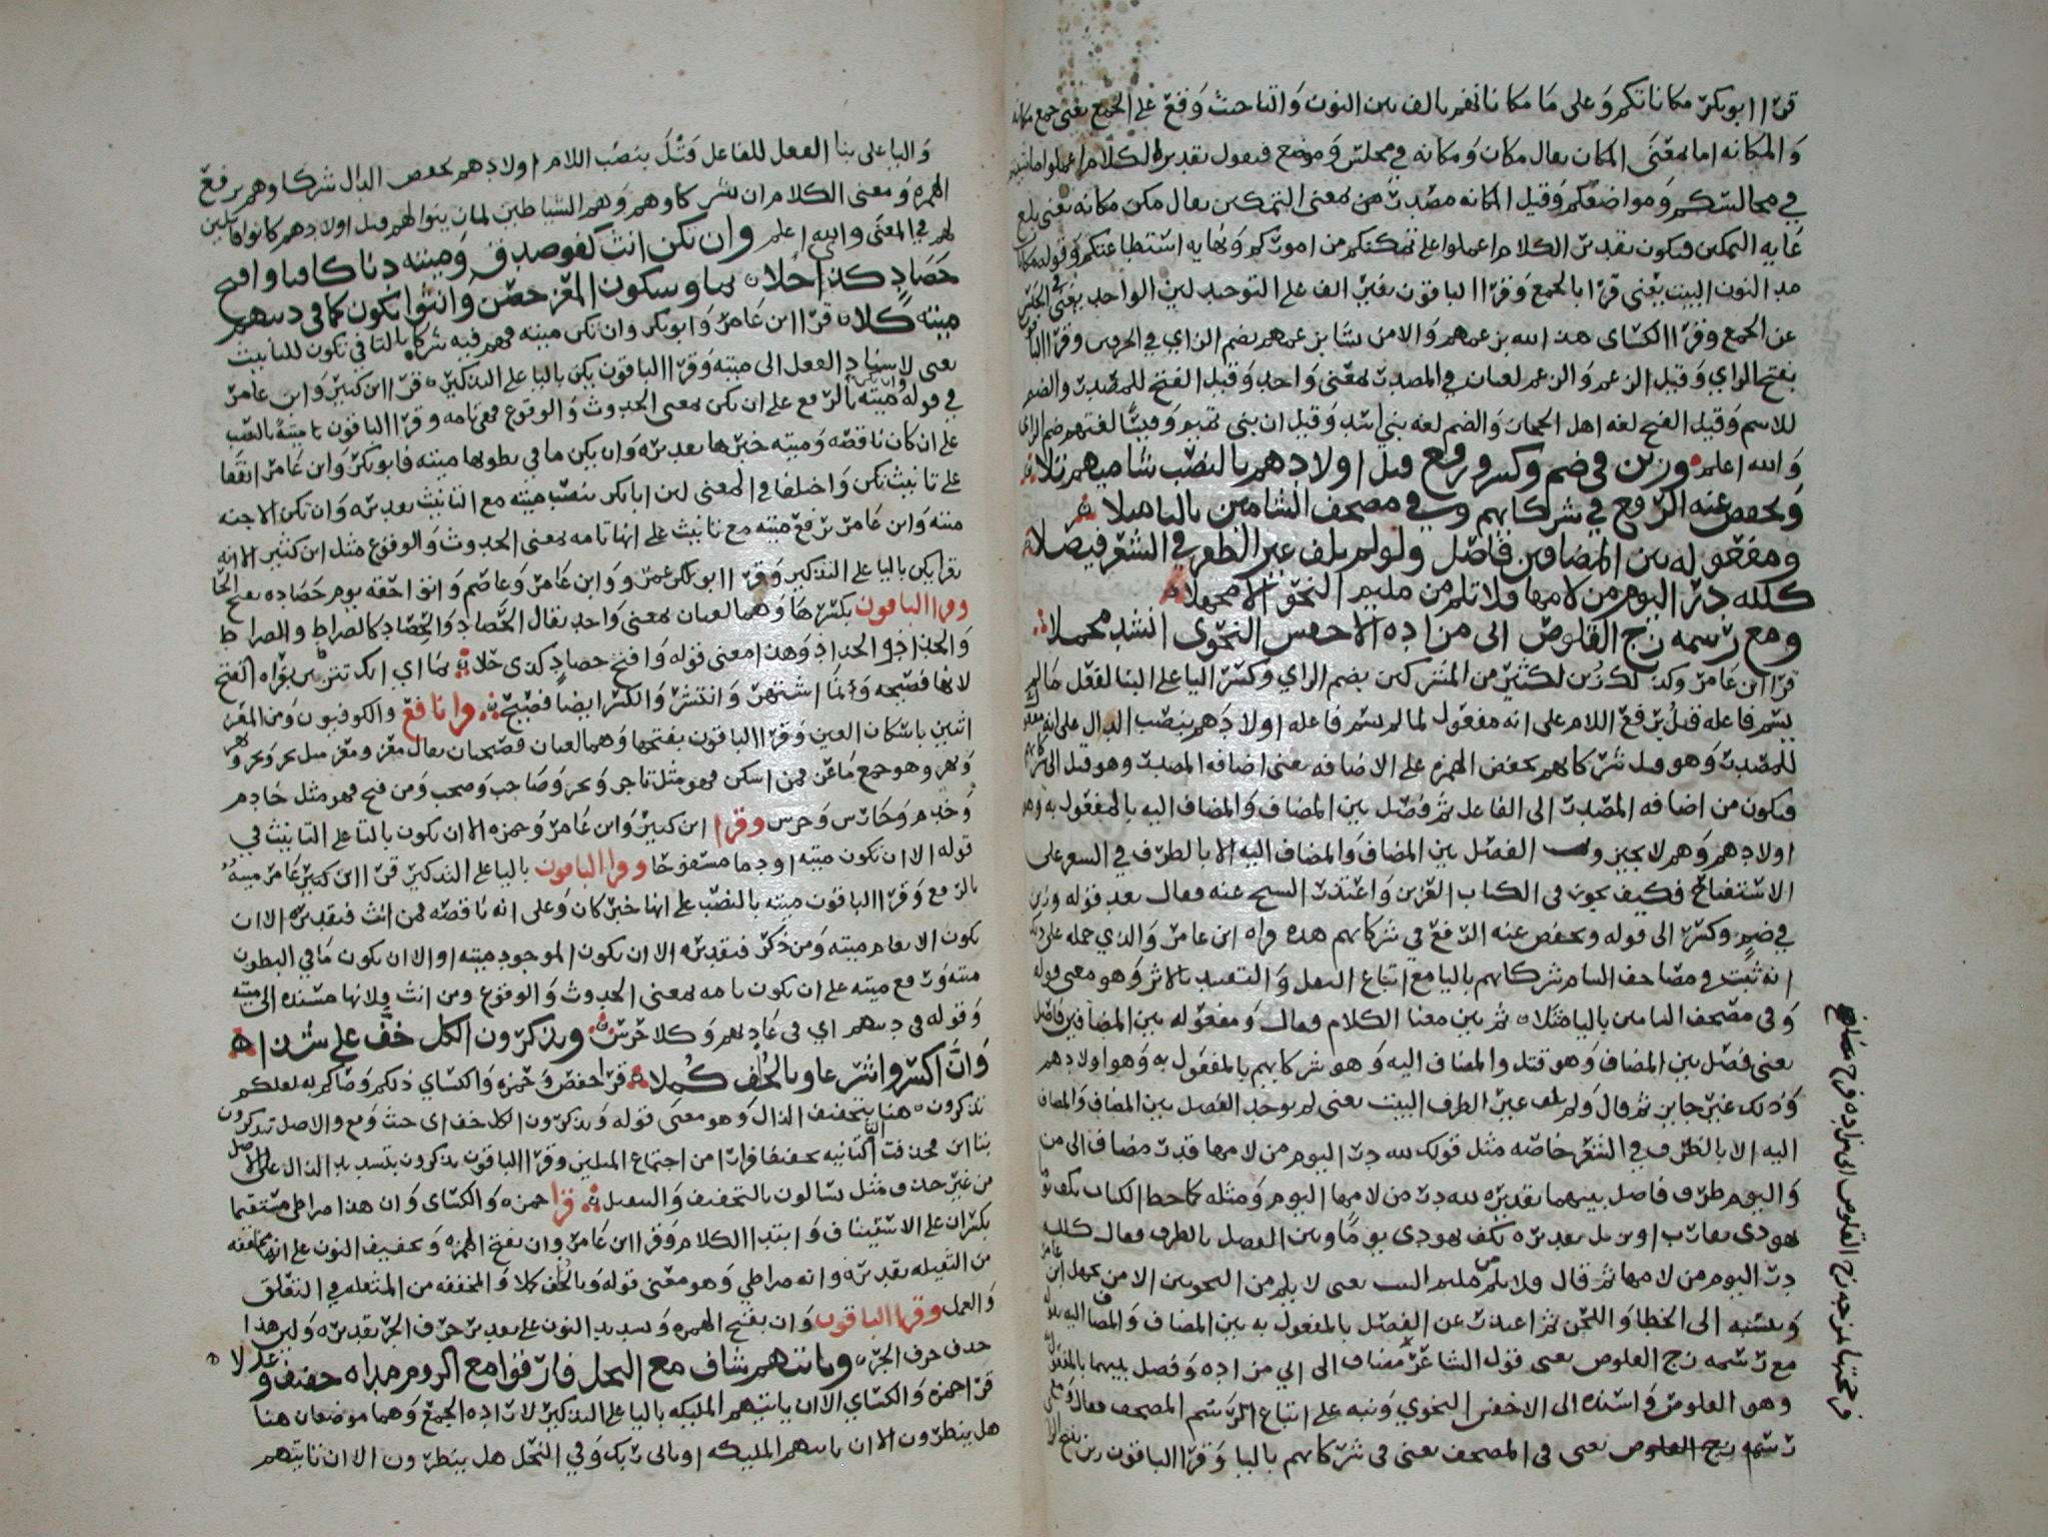 قرا ابو بكر مكاناتكم وعلى ما مكاناتهم بالف بين النون والتا حيث وقع على الجمع يعنى جمع مكانه
والمكانه اما بمعنى المكان يقال مكان ومكانه في مجلس وموضع فيقول تقديره الكلام اعملوا
في مجالسكم ومواضعكم وقيل المكانه مصدر من معنى التمكين يقال مكن مكانه يعنى بلغ
غايه التمكين فيكون تقدير الكلام اعملوا على تمكنكم من اموركم ونهايه استطاعتكم وقوله مكانات
مد النون البيت يعنى قرا بالجمع وقرا الباقون بغير الف على التوحيد لين الواحد يغنى
عن الجمع وقرا الكساى هذا لله بزعمهم والا من نشا بزعمهم بضم الزاي في الحرفين وقرا الباقون
بفتح الزاي وقيل الزعم والزعم لغتان في المصدر بمعنى واحد وقيل الفتح للمصدر والضم
للاسم وقيل الفتح لغه اهل الحجاز والضم لغه بني اسد وقيل ان بنى تميم وقيسا لغتهم ضم الزاى
والله اعلم وزين في ضم وكسر ورفع قتل اولادهم بالنصب شاميهم تلا
ويخفض عنه الرفع في شركايهم وفي مصحف الشامين باليا مثلا
ومفعوله بين المضافين فاصل ولم يلف غير الظرف في الشعر فيصلا
كلله در اليوم من لامها فلا تلم من مليم النحو الا مجهلا
ومع رسمه زج القلوص ابى مزاده الاخفش النحوى انشد مجملا
قرا ابن عامر وكذلك زين لكثير من المشركين بضم الزاي وكسر اليا على البنا لفعل ما لم
يسم فاعله قتل برفع اللام على انه مفعول لما لم يسم فاعله اولادهم بنصب الدال على انه
للمصدر وهو قتل شركايهم بخفض الهمزه على الاضافه يعنى اضافه المصدر وهو قتل الى شركايهم
فيكون من اضافه المصدر الى الفاعل ثم فصل بين المضاف والمضاف اليه بالمفعول به وهو
اولادهم وهم لا يجيزون الفصل بين المضاف والمضاف اليه الا بالظرف في الشعر على
الاستقباح فكيف يجوز في الكتاب العزيز واعتذر الشيخ عنه فقال بعد قوله وزين
في ضم وكسر الى قوله ويخفض عنه الرفع في شركايهم هذه قراه ابن عامر والذي حمله على ذلك
انه ثبت في مصاحف الشام شركايهم باليا مع اتباع النقل والتقييد بالاثر وهو معنى قوله
وفى مصحف الشامين باليا مثلا ثم بين معنا الكلام فقال ومفعوله بين المضافين فاصل
يعنى فصل بين المضاف وهو قتل والمضاف اليه وهو شركايهم بالمفعول به وهو اولادهم
وذلك غير جايز ثم قال ولم يلف غير الظرف البيت يعنى لم يوجد الفصل بين المضاف والمضاف
اليه الا بالظرف في الشعر خاصه مثل قولك لله در اليوم من لامها فدر مضاف الى من
واليوم ظرف فاصل بينهما تقديره لله در من لامها اليوم ومثله كما خط الكتاب بكف يوما
يهودى يقارب او يزيل تقديره بكف يهودى يوما وبين الفصل بالظرف فقال كلله
در اليوم من لامها ثم قال ولا تلم من مليم البيت يعنى لا تلم من النحويين الا من يجهل ابن عامر
وينسبه الى الخطا واللحن ثم اعتذر عن الفصل بالمفعول به بين المضاف والمضاف اليه بقوله
مع رسمه زج القلوص يعنى قول الشاعر مضاف الى ابي مزاده وفصل بينهما بالمفعول
وهو القلوص واسنده الى الاخفش النحوي ونبه على اتباع الرسم المصحف فقال ومع
رسمه زج القلوص يعنى في المصحف يعنى في شركايهم باليا وقرا الباقون زين بفتح الزا
فزججتها بمزجه زج القلوص ابى مزاده
واليا على بنا الفعل للفاعل قتل بنصب اللام اولادهم بخفض الدال شركاوهم برفع
الهمزه ومعنى الكلام ان شركاوهم وهم الشياطين زينوا لهم قتل اولادهم كانوا قاتلين
لهم في المعنى والله اعلم وان تكن انث كفو صدق وميته دنا كافيا وافتح
حصاد كذى حلا نما وسكون المعز حصن وانثوا يكون كما في دينهم
ميته كلا قرا ابن عامر وابو بكر وان تكن ميته فهم فيه شركا بالتا في تكون للتانيث
يعنى لاسناد الفعل الى ميته وقرا الباقون يكن باليا على التذكير قرا ابن كثير وابن عامر
في قوله وان يكن ميته بالرفع على ان يكن بمعنى الحدوث والوقوع فهى تامه وقرا الباقون ميتة بالنصب
على ان كان ناقصه وميته خبرها تقديره وان يكن ما في بطونها ميته فابو بكر وابن عامر اتفقا
على تانيث تكن واختلفا في المعنى لين ابا بكر بنصب ميته مع التانيث تقديره وان تكن الاجنه
ميته وابن عامر برفع ميته مع تانيث على انها تامه بمعنى الحدوث والوقوع مثل ابن كثير الا انه
يقرا يكن باليا على التذكير وقرا ابو عمرو وابن عامر وعاصم واتوا حقه يوم حصاده بفتح الحا
وقرا الباقون بكسرها وهما لغتان بمعنى واحد يقال الحصاد والحصاد كالصراط والصراط
والجذاذ والجذاذ وهذا معنى قوله وافتح حصاد كذى حلا نما اي انك تتزين بقراه الفتح
لانها فصيحه ولما اشتهر وانتشر والكسر ايضا فصيح وقرا نافع والكوفيون ومن المعز
اثنين باسكان العين وقرا الباقون بفتحها وهما لغتان فصيحتان يقال معز ومعز مثل نحر ونحر ونهر
ونهر وهو جمع ماعز فمن اسكن فهو مثل تاجر وتجر وصاحب وصحب ومن فتح فهو مثل خادم
وخدم وحارس وحرس وقرا ابن كثير وابن عامر وحمزه الا ان تكون بالتا على التانيث في
قوله الا ان تكون ميته او دما مسفوحا وقرا الباقون باليا على التذكير قرا ابن عامر ميتة
بالرفع وقرا الباقون ميته بالنصب على انها خبر كان وعلى انه ناقصه فمن انث فتقديره الا ان
تكون الانعام ميته ومن ذكر فتقديره الا ان يكون الموجود ميته او الا ان يكون ما في البطون
ميته ورفع ميته على ان يكون تامه بمعنى الحدوث والوقوع ومن انث فلانها مسنده الى ميته
وقوله في دينهم اي في عادتهم وكلا حرس وتذكرون الكل خف على شذا
وان اكسروا شرعا وبالخف كملا قرا حفص وحمزه والكساي ذلكم وصاكم به لعلكم
تذكرون هنا بتخفيف الذال وهو معنى قوله وتذكرون الكل خف اى حيث وقع والاصل تتذكرون
بتاين فحذفت التا الثانيه تخفيفا فرارا من اجتماع المثلين وقرا الباقون تذكرون بتشديد الذال على الاصل
من غير حذف مثل تسالون بالتخفيف والتثقيل قرا حمزه والكساى وان هذا صراطى مستقيما
بكسر ان على الاستيناف وابتدا الكلام وقرا ابن عامر وان بفتح الهمزه وتخفيف النون على انها مخففه
من الثقيله تقديره وانه صراطي وهو معنى قوله وبالخف كملا والمخففه من المثقله في التعلق
والعمل وقرا الباقون وان بفتح الهمزه وتشديد النون على تقدير حرف الجر تقديره ولين هذا
حذف حرف الجر وياتيهم شاف مع النحل فارقوا مع الروم مداه خفيفا وعدلا
قرا حمزه والكساي الا ان ياتيهم المليكه باليا على التذكير لاراده الجمع وهما موضعان هنا
هل ينظرون الا ان ياتيهم المليكه او ياتى ربك وفي النحل هل ينظرون الا ان تاتيهم